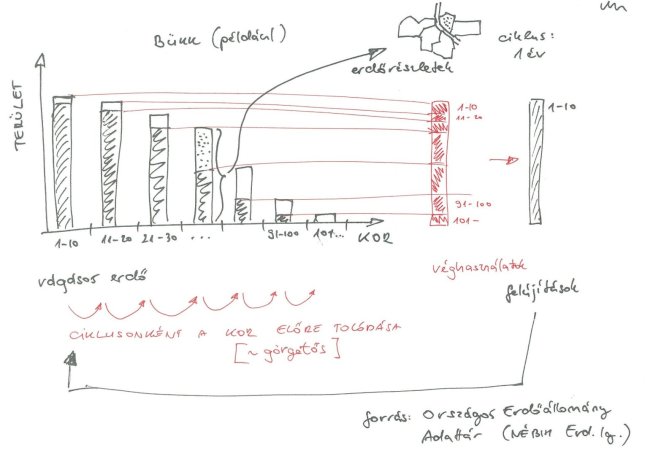 Bükk (például)
ciklus:
1 év
erdőrészletek
TERÜLET
1-10
11-20
91-100
101-
1-10
1-10
11-20
21-30
...
91-100
101...
KOR
vágásos erdő
véghasználatok
felújítások
CIKLUSONKÉNT A KOR ELŐRE TOLÓDÁSA
[~ görgetős]
forrás: Országos Erdőállomány
Adattár (NÉBIH Erd. Ig.)